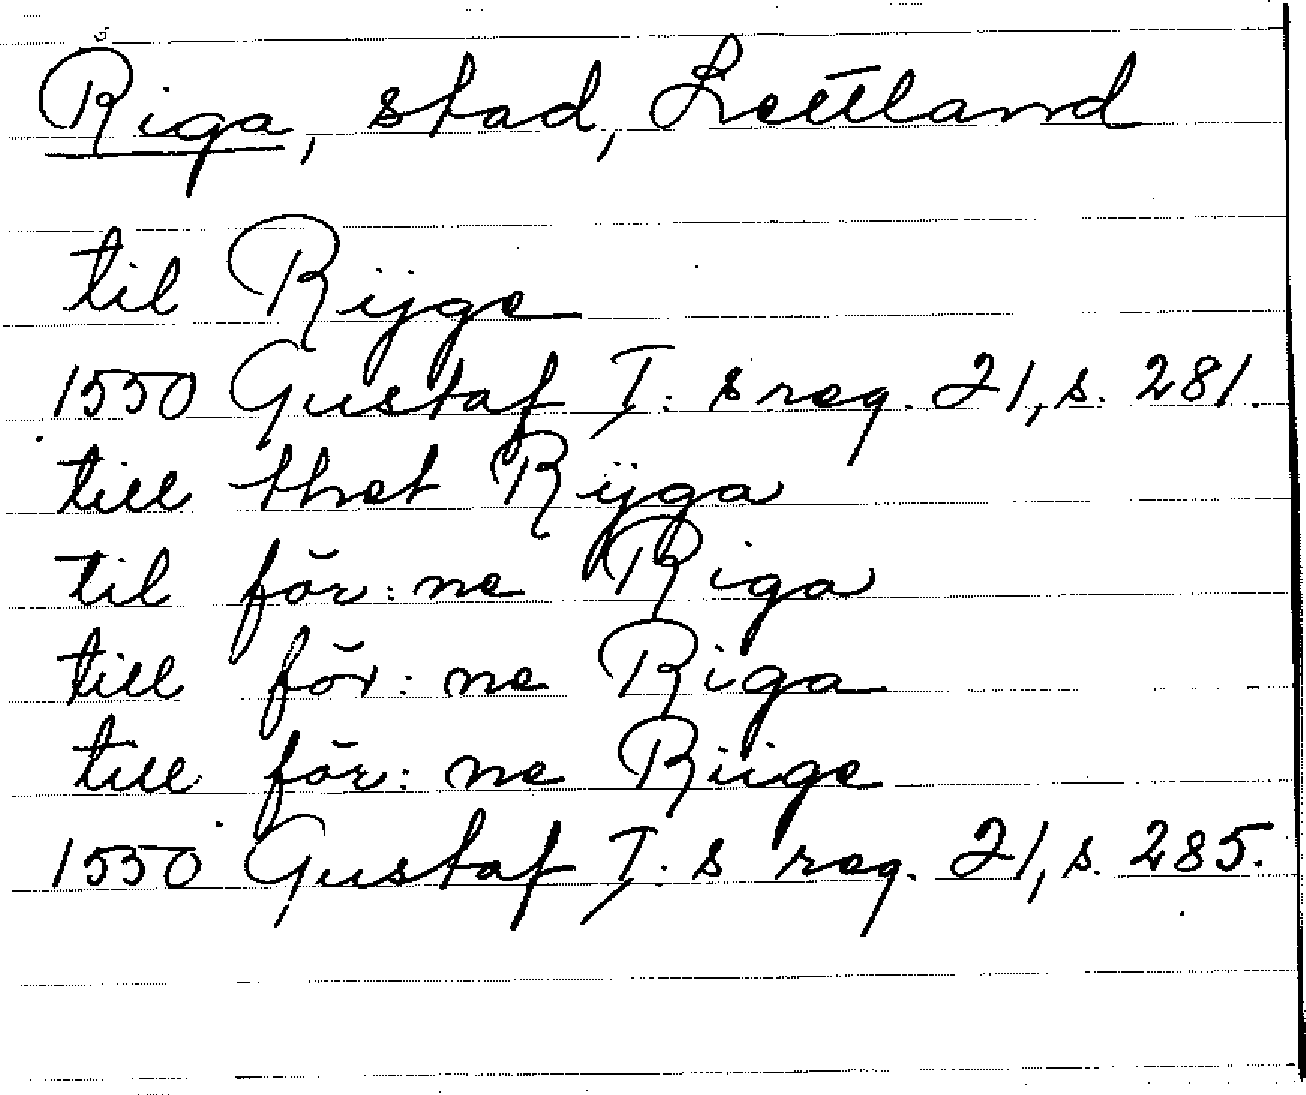 Riga, stad, Lettland
til Rijge
1550 Gustaf I:s reg. 21, s. 281.
till thet Rÿga
til för:ne Riga
till för:ne Riga
till för:ne Riige
1550 Gustaf I:s reg. 21, s. 285.